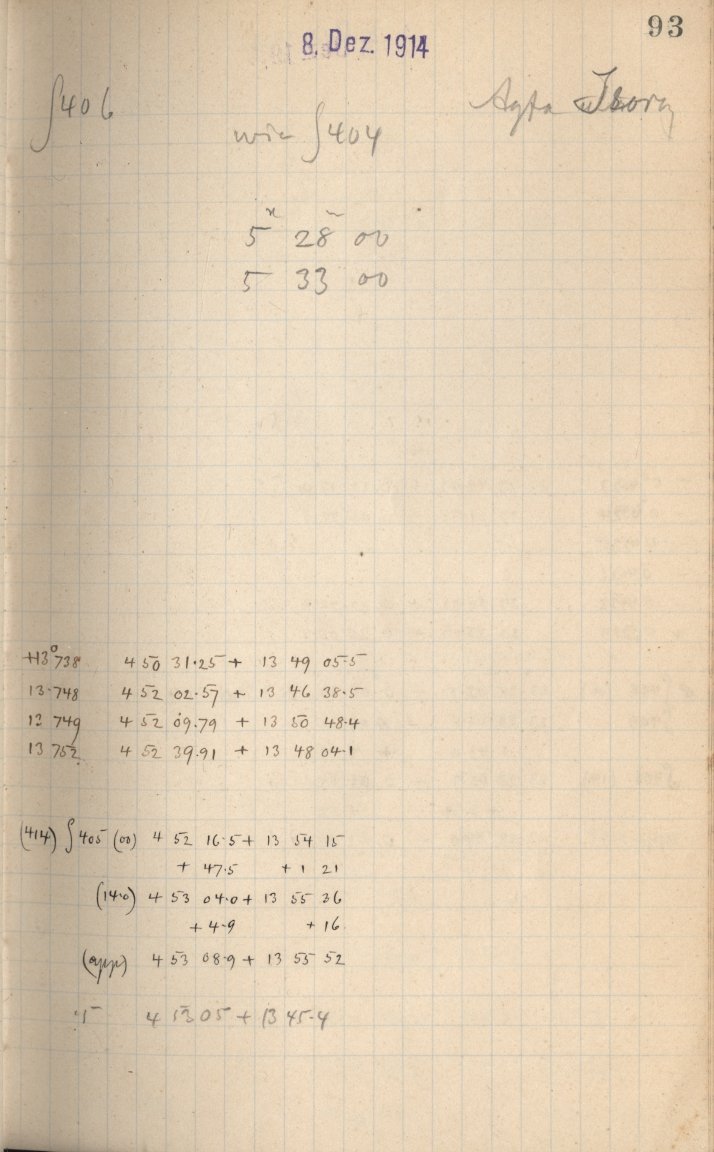 93
8. Dez. 1914
∫406
Agfa Isora
wie ∫404
5ʰ 28ᵐ 00
5 33 00
+13°738 4 50 31.25 + 13 49 05.5
13.748 4 52 02.57 + 13 46 38.5
13 749 4 52 09.79 + 13 50 48.4
13 752 4 52 39.91 + 13 48 04.1
(414) ∫405 (00) 4 52 16.5 + 13 54 15
+ 47.5 + 1 21
(14.0) 4 53 04.0 + 13 55 36
+ 4.9 + 16
(app) 4 53 08.9 + 13 55 52
4 53 05 + 13 45.4